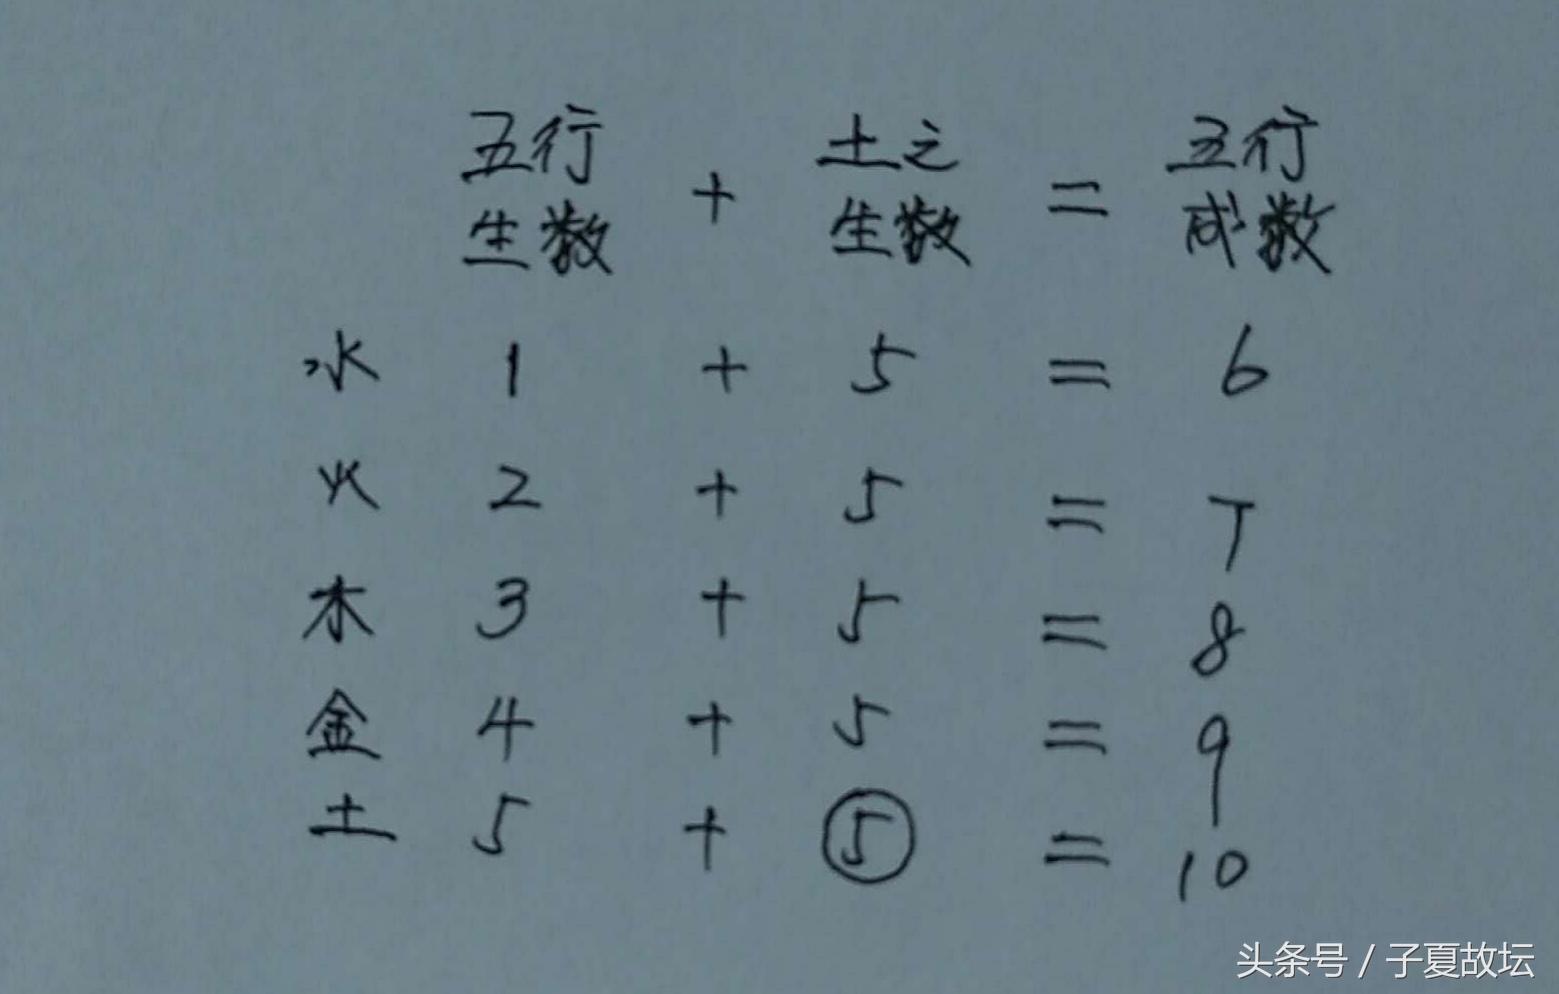 五行 土之 五行
生数 + 生数 = 成数
水 1 + 5 = 6
火 2 + 5 = 7
木 3 + 5 = 8
金 4 + 5 = 9
土 5 + ⑤ = 10
头条号 / 子夏故坛